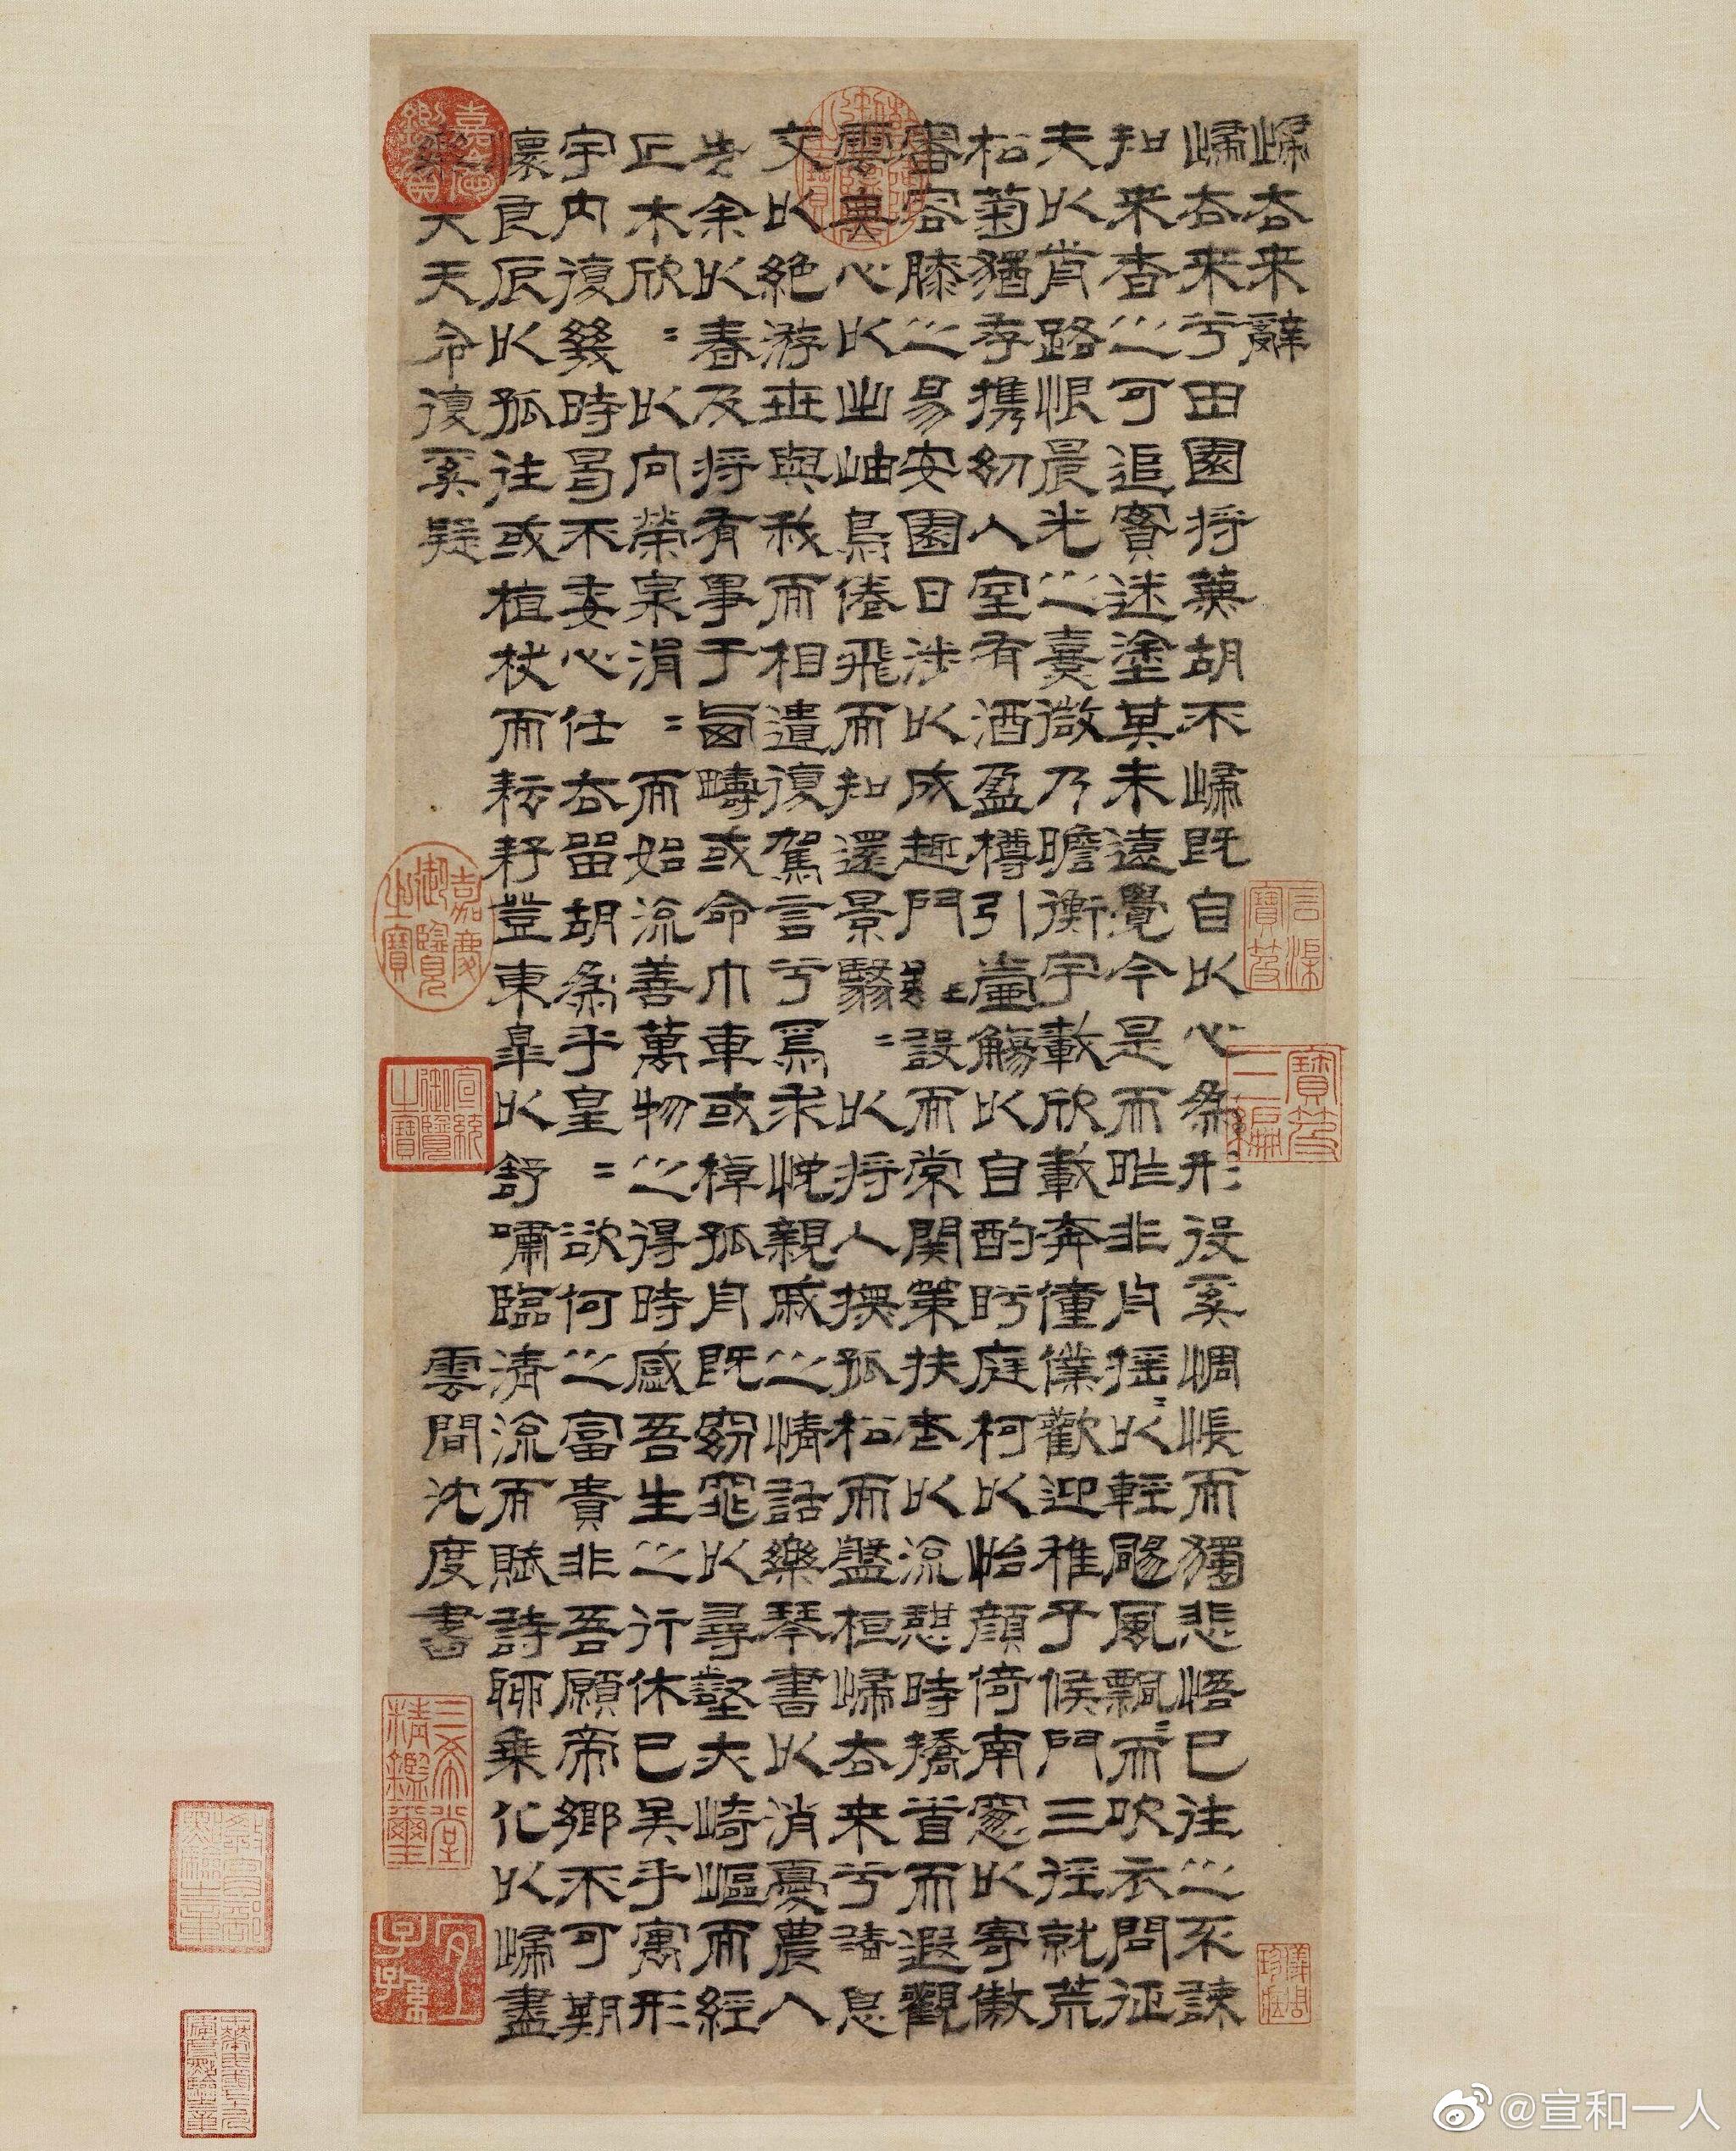 歸去来辭
歸去来兮田園将蕪胡不歸既自以心為形役奚惆悵而獨悲悟已往之不諫
知来者之可追實迷塗其未遠覺今是而昨非舟摇〻以輕颺風飄〻而吹衣問征
夫以前路恨晨光之熹微乃瞻衡宇載欣載奔僮僕歡迎稚子候門三徑就荒
松菊猶存携幼入室有酒盈樽引壺觴以自酌眄庭柯以怡顏倚南窓以寄傲
審容膝之易安園日涉以成趣門雖設而常關策扶老以流憩時矯首而遐觀
雲無心以出岫鳥倦飛而知還景翳〻以将入撫孤松而盤桓歸去来兮請息
交以絶游世與我而相遺復駕言兮焉求悦親戚之情話樂琴書以消憂農人
告余以春及将有事于西疇或命巾車或棹孤舟既窈窕以尋壑亦崎嶇而經
丘木欣〻以向榮泉涓〻而始流善萬物之得時感吾生之行休已矣乎寓形
宇内復幾時曷不委心任去留胡為乎皇〻欲何之富貴非吾願帝鄉不可期
懷良辰以孤往或植杖而耘耔登東皋以舒嘯臨清流而賦詩聊乗化以歸盡
樂夫天命復奚疑
雲間沈度書
石渠寶笈
寶笈三編
嘉慶御覽之寶
宣統御覽之寶
三希堂精鑑璽
宜子孫
@宣和一人